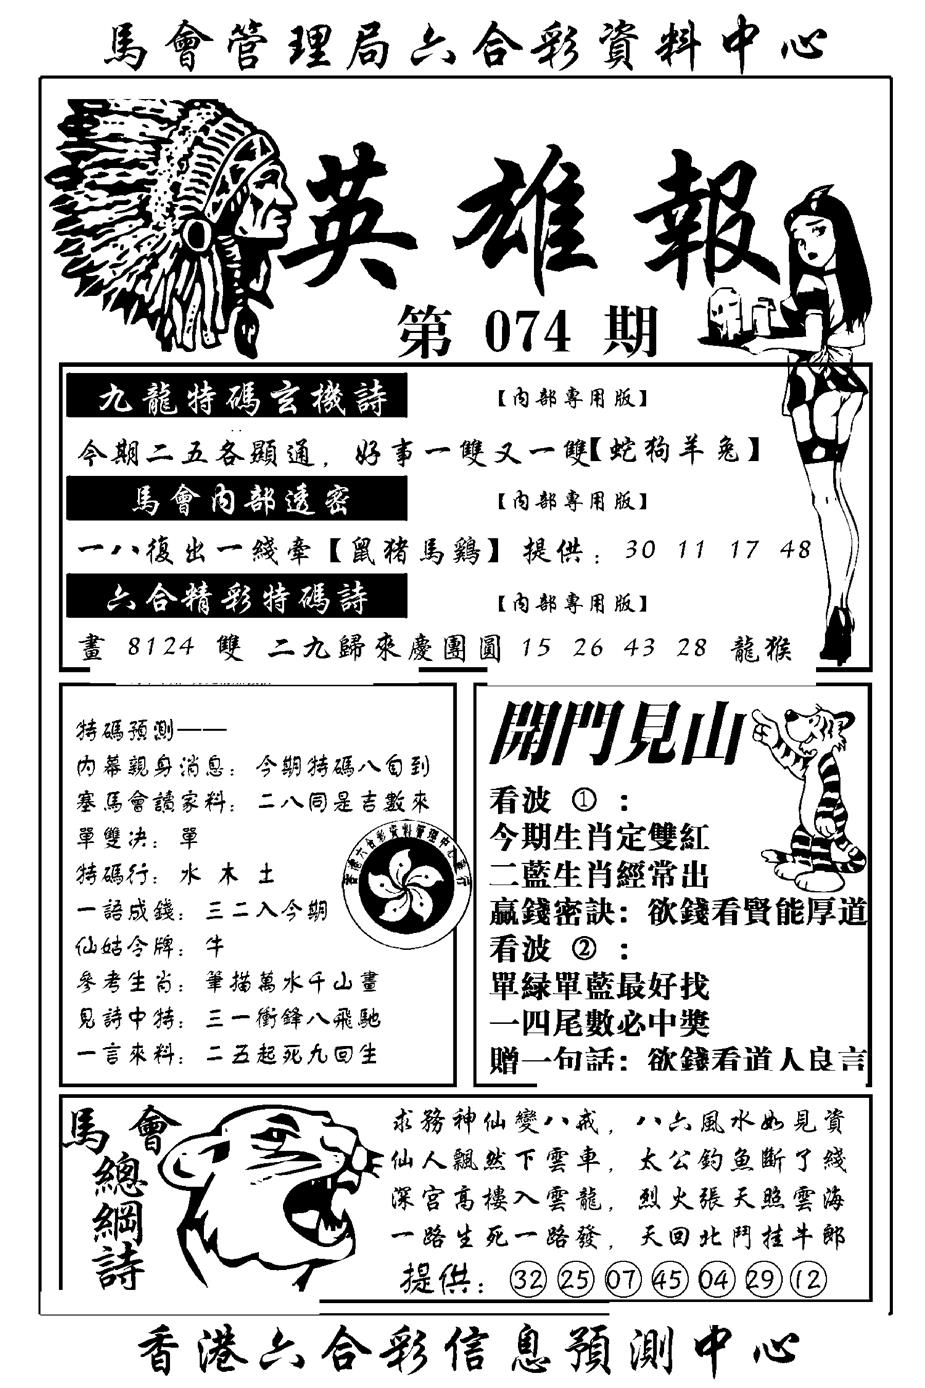 馬會管理局六合彩資料中心
英雄報
第 074 期
九龍特碼玄機詩
【內部專用版】
今期二五各顯通，好事一雙又一雙【蛇狗羊兔】
馬會內部透密
【內部專用版】
一八復出一綫牽【鼠猪馬鷄】提供：30 11 17 48
六合精彩特碼詩
【內部專用版】
畫 8124 雙 二九歸來慶團圓 15 26 43 28 龍猴
特碼預測——
內幕親身消息：今期特碼八自到
塞馬會讀家料：二八同是吉數來
單雙決：單
特碼行：水 木 土
一語成錢：三二入今期
仙姑令牌：牛
參考生肖：筆描萬水千山畫
見詩中特：三一衝鋒八飛馳
一言來料：二五起死九回生
開門見山
看波 ① ：
今期生肖定雙紅
二藍生肖經常出
贏錢密訣：欲錢看賢能厚道
看波 ② ：
單緑單藍最好找
一四尾數必中獎
贈一句話：欲錢看道人良言
馬會
總綱詩
求務神仙變八戒，八六風水如見資
仙人飄然下雲車，太公釣魚斷了綫
深宮高樓入雲龍，烈火張天照雲海
一路生死一路發，天回北鬥挂牛郎
提供：32 25 07 45 04 29 12
香港六合彩信息預測中心